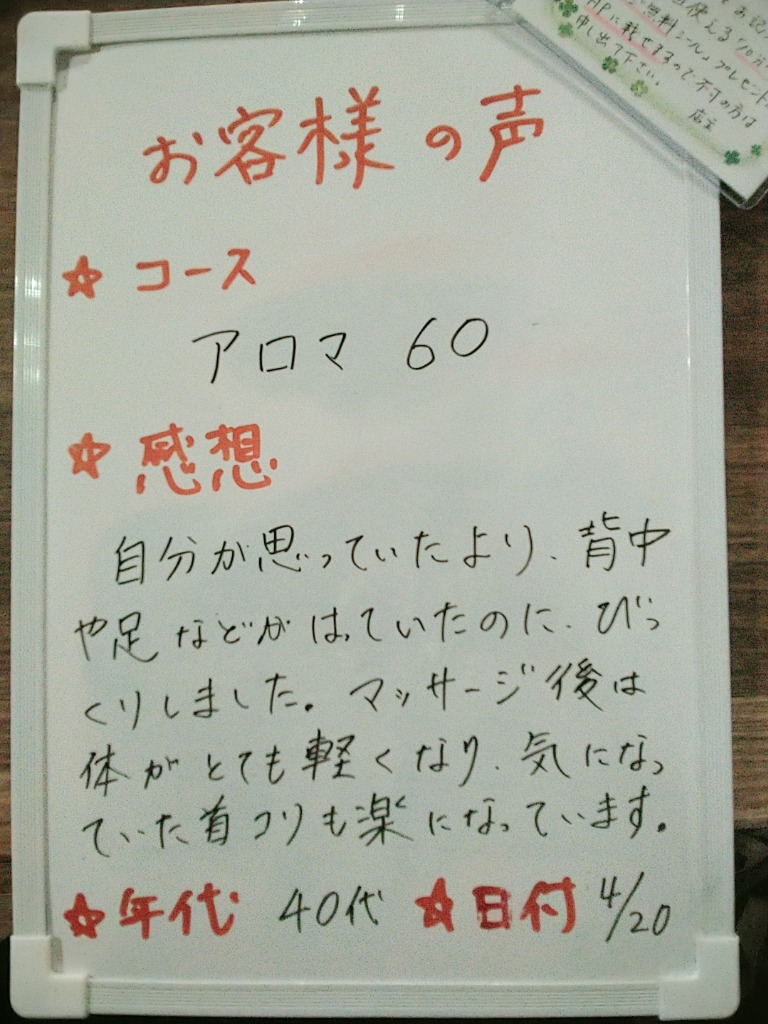 お客様の声
☆ コース
アロマ 60
☆ 感想
自分が思っていたより、背中
や足などがはっていたのに、びっ
くりしました。マッサージ後は
体がとても軽くなり、気になっ
ていた首コリも楽になっています。
☆年代 40代 ☆日付 4/20
使える10分
無料シール」プレゼント
HPに載せますので不可の方は
申し出て下さい。
店主